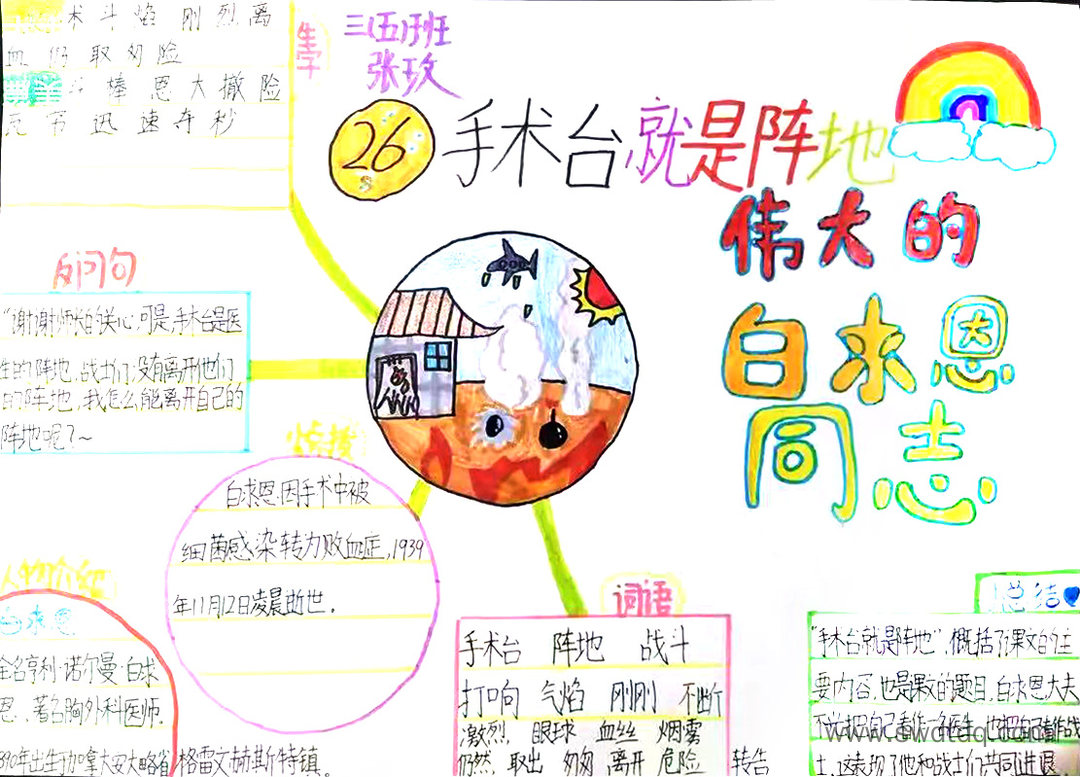 术 斗 焰 刚 烈 离
血 取 匆 险
斗 棒 恩 大 撤 险
迅 速 夺 秒
生字
三(五)班
张玫
26
手术台就是阵地
伟大的
白求恩
同志
反问句
"谢谢师长的关心,可是,手术台是医
生的阵地。战士们没有离开他们
的阵地,我怎么能离开自己的
阵地呢?~
白求恩因手术中被
细菌感染转为败血症,1939
年11月12日凌晨逝世。
人物介绍
白求恩
全名亨利·诺尔曼·白求
恩,著名胸外科医师.
890年出生于加拿大安大略省格雷文赫斯特镇。
词语
手术台 阵地 战斗
打响 气焰 刚刚 不断
激烈. 眼球 血丝 烟雾
仍然. 取出 匆匆 离开 危险 转告
总结
"手术台就是阵地",概括了课文的主
要内容,也是课文的题目.白求恩大夫
不仅把自己看作一名医生,也把自己看作战
士,这表现了他和战士们共同进退